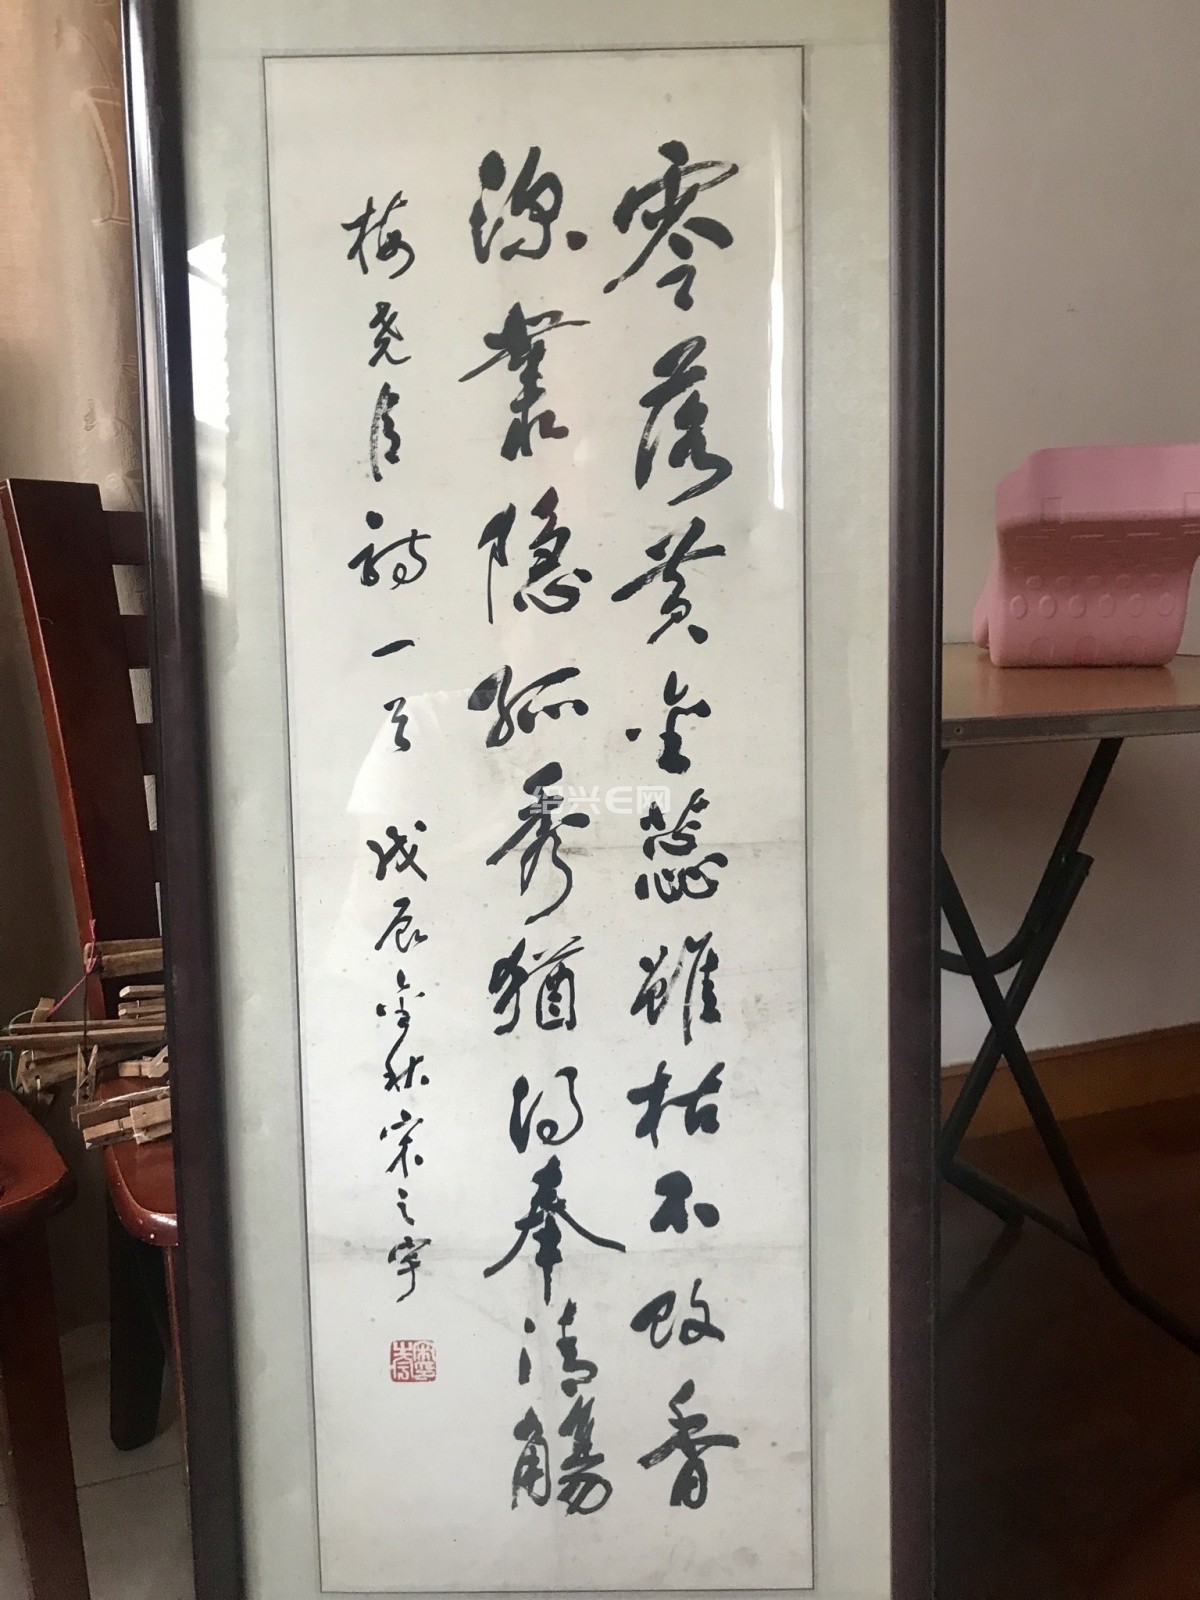 零落黄金蕊雖枯不改香
深叢隐孤秀猶得奉清觴
梅尧臣詩一首 戊辰金秋宋之宇
绍兴E网